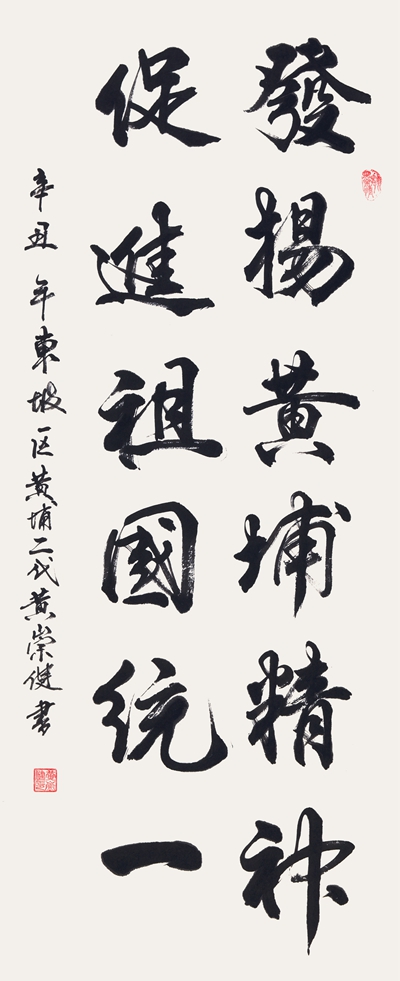 發揚黃埔精神
促進祖國統一
辛丑年東坡区黄埔二代黄崇健書